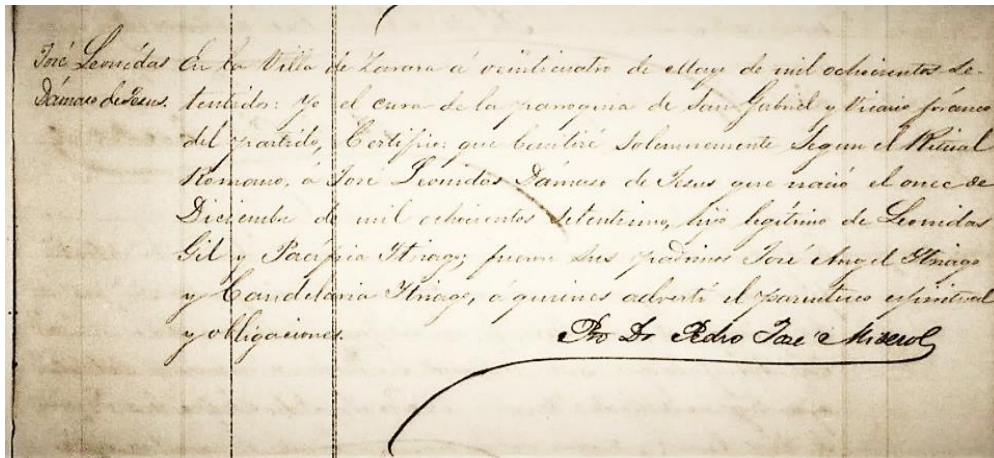 José Leonidas
Dámaso de Jesus.
En la Villa de Zaraza á veinticuatro de Mayo de mil ochocientos se-
tentidos: Yo el cura de la parroquia de San Gabriel y Vicario foráneo
del partido, Certifico: que bauticé solemnemente segun el Ritual
Romano, á José Leonidas Dámaso de Jesus que nació el once de
Diciembre de mil ochocientos setentiuno, hijo legítimo de Leonidas
Gil y Pacífica Itriago; fueron sus padrinos José Angel Itriago
y Candelaria Itriago, á quienes advertí el parentesco espiritual
y obligaciones.
Pbro Dr Pedro José